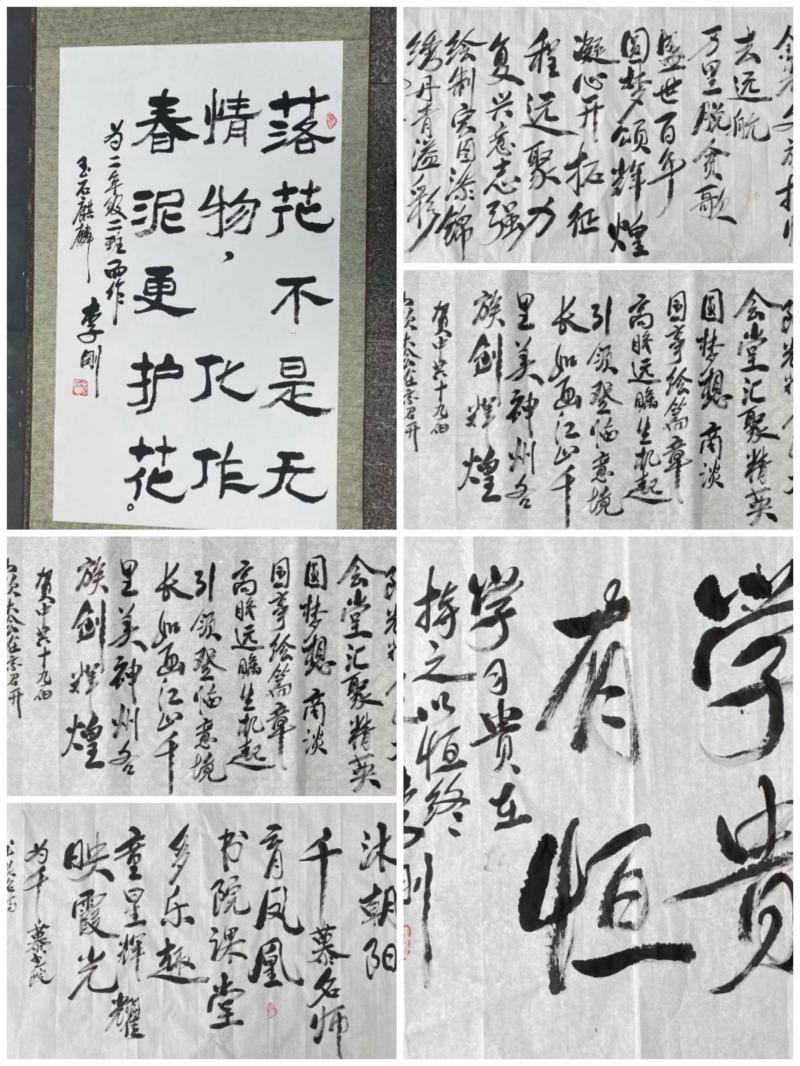 落花不是无
情物，化作
春泥更护花。
为二年级二班而作
玉石麒麟
李刚
去远航
万里脱贫歌
盛世百年
圆梦颂辉煌
凝心开征
程远聚力
复兴意志强
绘制宏图添锦
绣丹青溢彩
会堂汇聚精英
圆梦想商谈
国事绘篇章
高瞻远瞩生机起
引领登临意境
长如画江山千
里美神州各
族创辉煌
贺中共十九届
会堂汇聚精英
圆梦想商谈
国事绘篇章
高瞻远瞩生机起
引领登临意境
长如画江山千
里美神州各
族创辉煌
贺中共十九届
学贵
有恒
学习贵在
持之以恒终
李刚
沐朝阳
千慕名师
育凤凰
书院课堂
多乐趣
童星辉耀
映霞光
为千慕书院